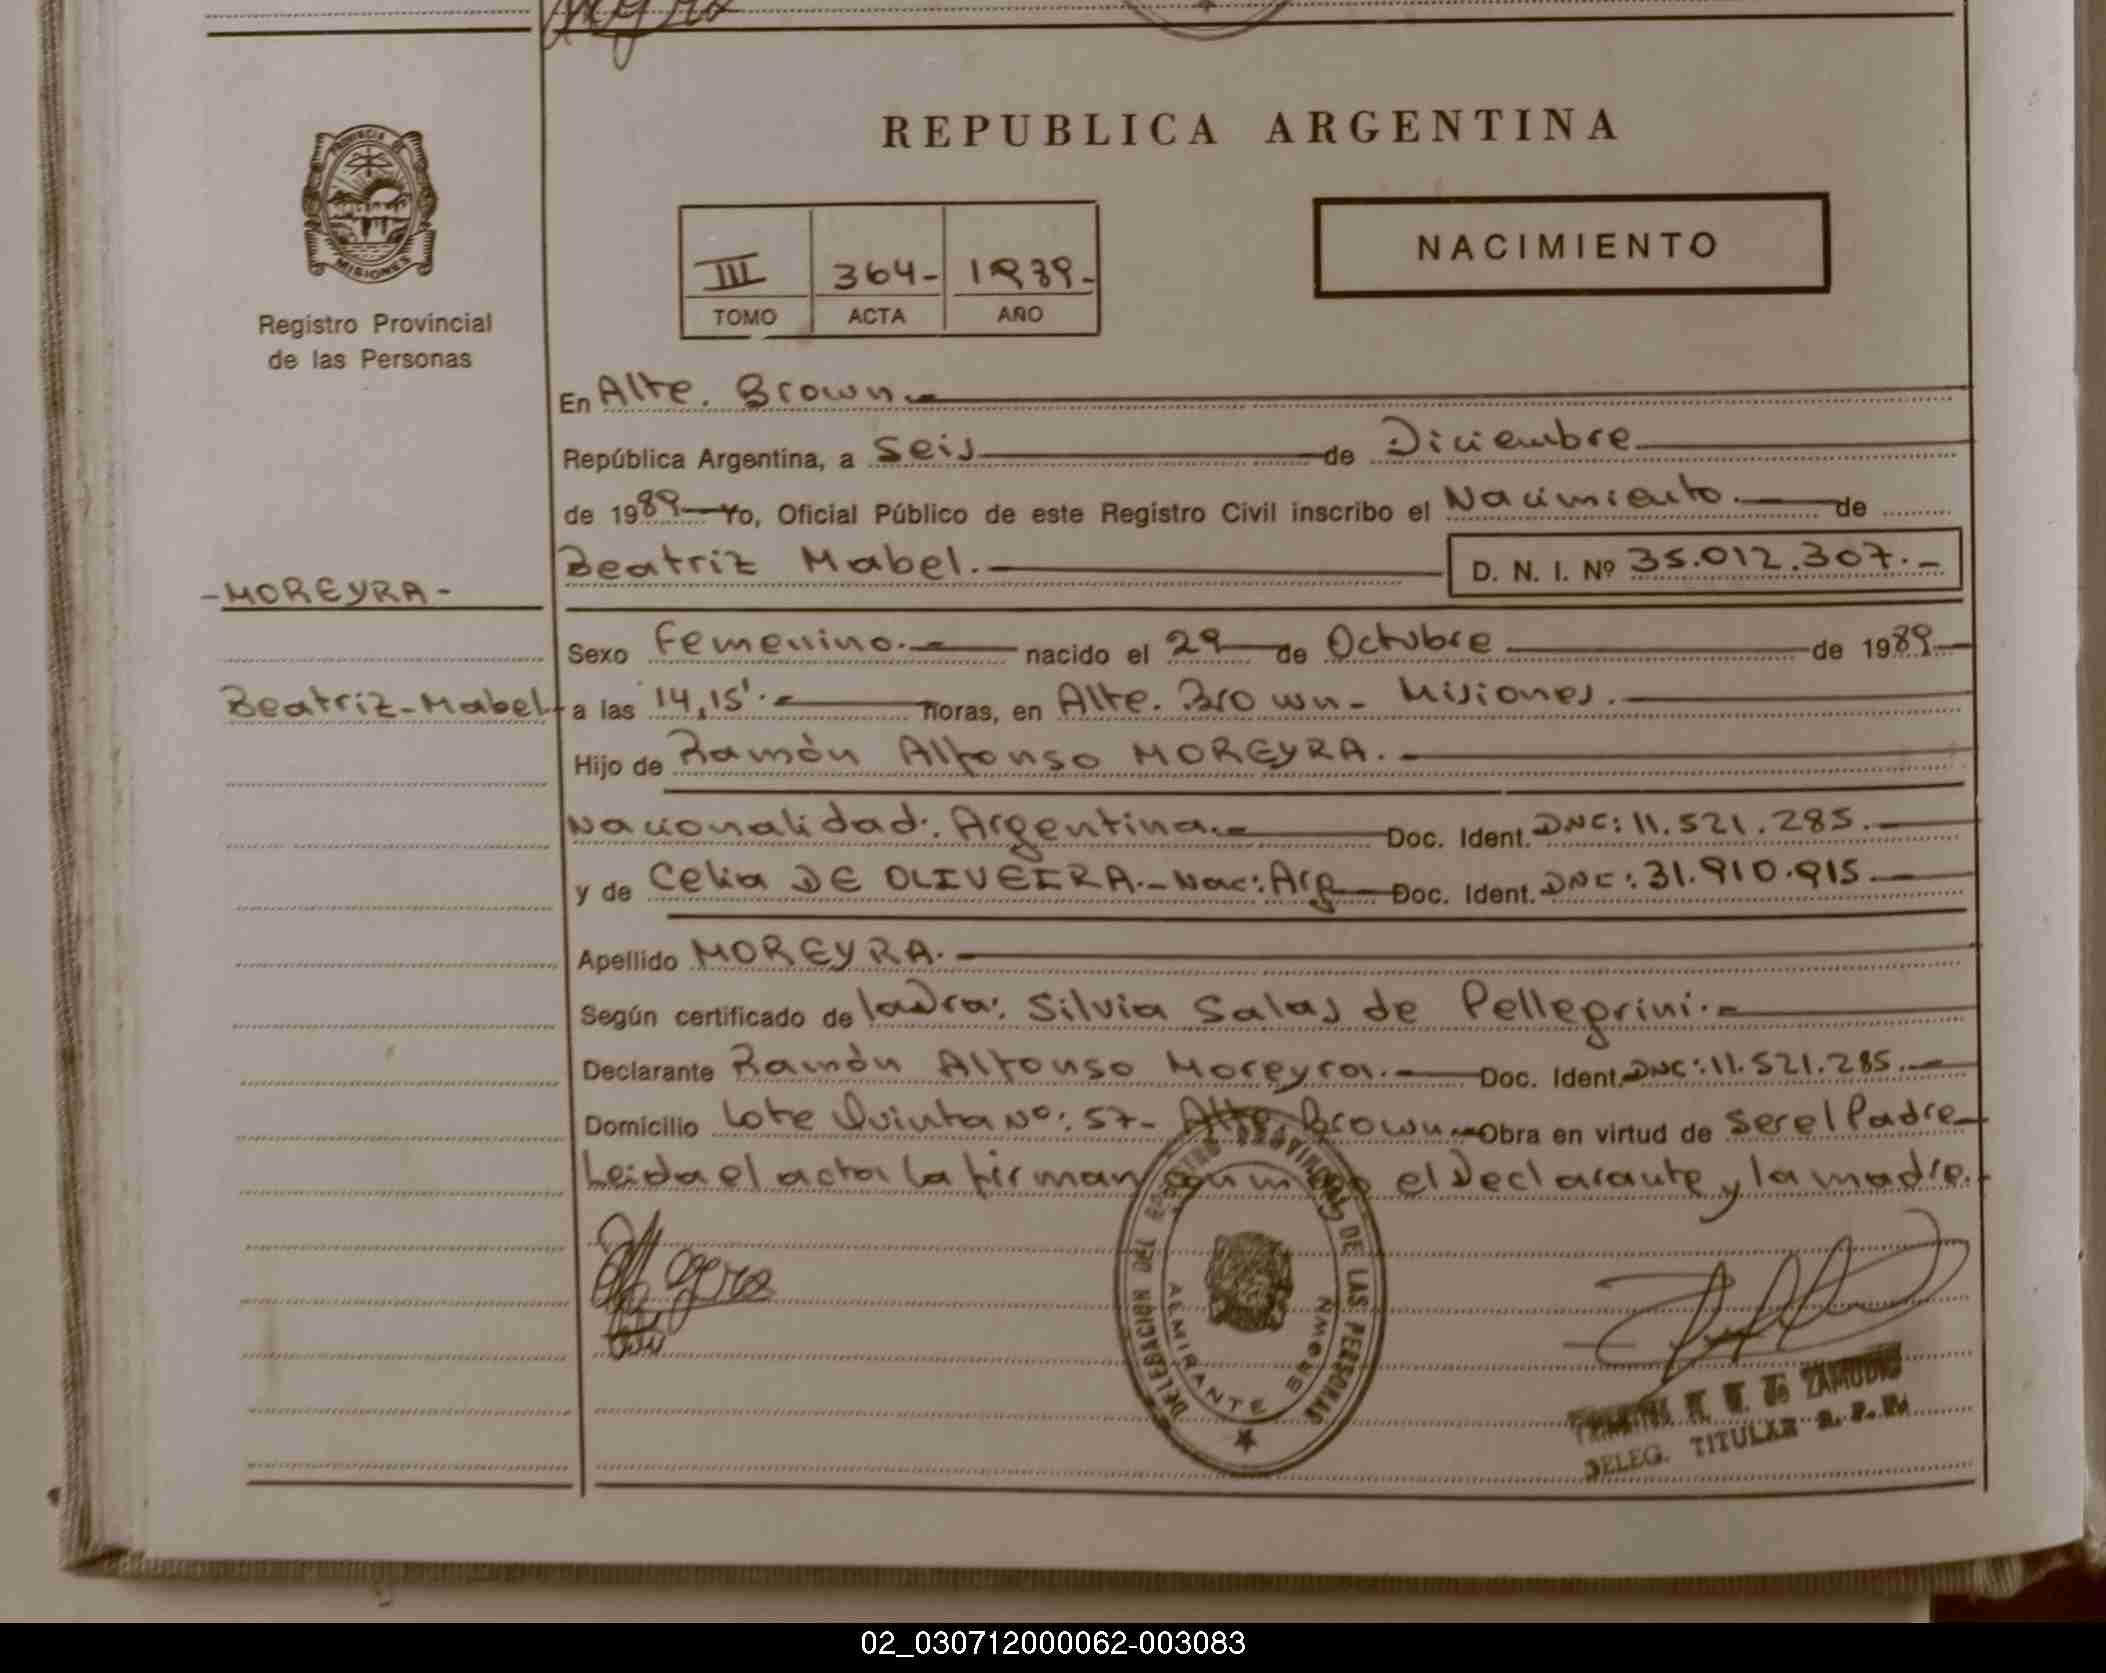 REPUBLICA ARGENTINA
PROVINCIA DE
MISIONES
Registro Provincial
de las Personas
NACIMIENTO
III 364- 1989-
TOMO ACTA AÑO
En Alte. Brown.-
República Argentina, a Seis de Diciembre
de 1989 Yo, Oficial Público de este Registro Civil inscribo el Nacimiento.- de
Beatriz Mabel.- D. N. I. Nº 35.012.307.-
-MOREYRA-
Sexo Femenino.- nacido el 29 de Octubre de 1989
Beatriz-Mabel
a las 14,15'.- horas, en Alte. Brown- Misiones.
Hijo de Ramón Alfonso MOREYRA.-
Nacionalidad: Argentina.- Doc. Ident. DNI: 11.521.285.-
y de Celia DE OLIVEIRA.-Nac: Arg Doc. Ident. DNI: 31.910.915
Apellido MOREYRA.-
Según certificado de la Dra: Silvia Salas de Pellegrini.-
Declarante Ramón Alfonso Moreyra.- Doc. Ident. DNI: 11.521.285.-
Domicilio Lote Quinta Nº: 57- Alte. Brown.- Obra en virtud de ser el Padre
Leida el acta la firman conmigo el Declarante y la madre.
REGISTRO PROVINCIAL DE LAS PERSONAS
DELEGACION
ALMIRANTE BROWN
ZAMUDIO
DELEG. TITULAR R. P. P.
02_030712000062-003083